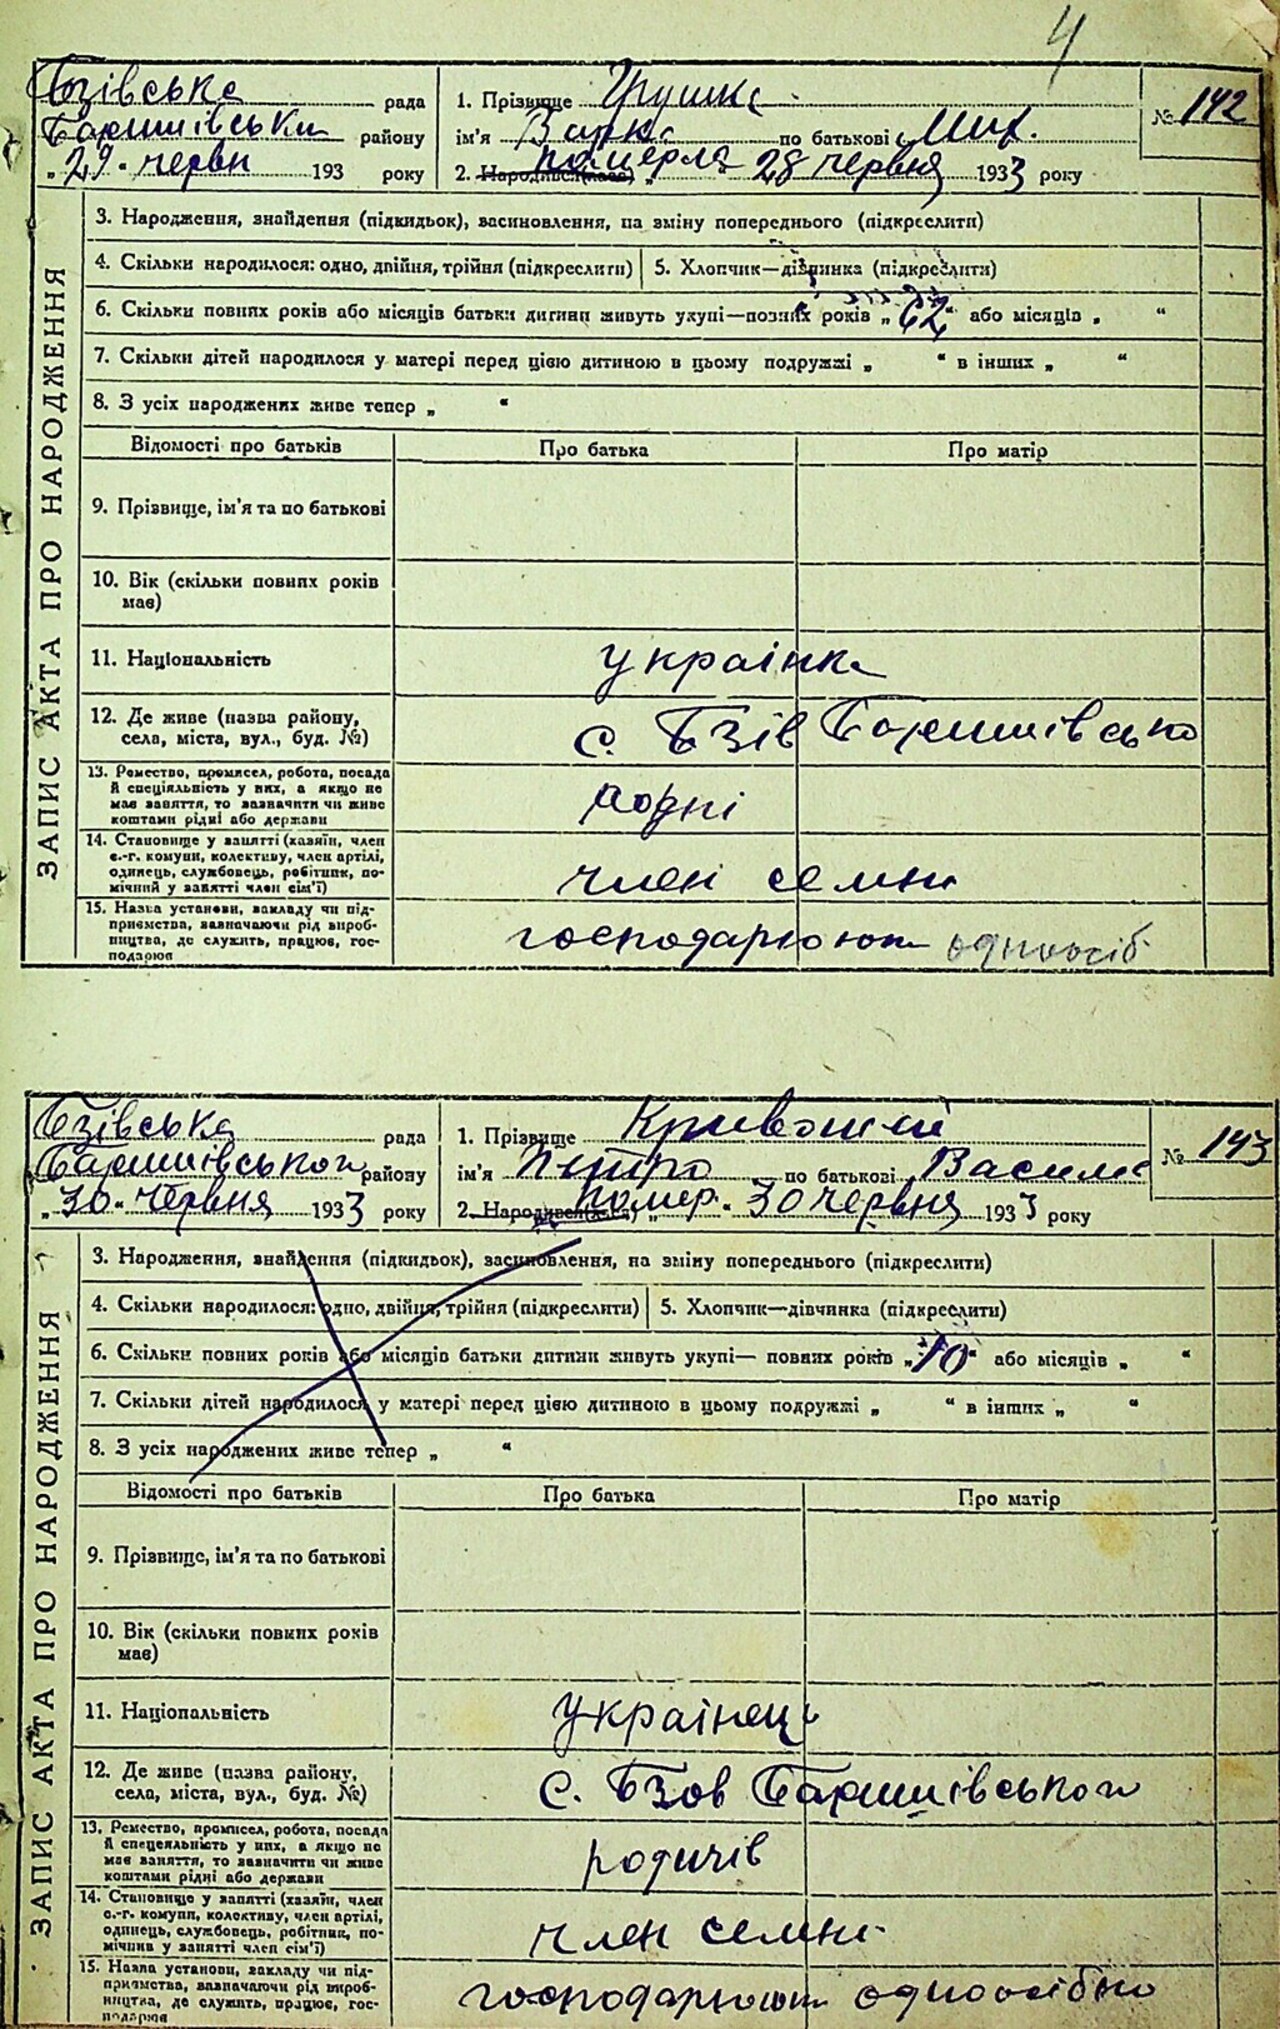 4
Бзівська рада
Баришівськи району
„29“ червн 193 року
1. Прізвище Грушка
ім'я Варка по батькові Мих.
2. Народився(лась) померла „28 червня 1933 року
№ 142
ЗАПИС АКТА ПРО НАРОДЖЕННЯ
3. Народження, знайдення (підкидьок), васиновлення, на зміну попереднього (підкреслити)
4. Скільки народилося: одно, двійня, трійня (підкреслити) 5. Хлопчик—дівчинка (підкреслити)
6. Скільки повних років або місяців батьки дитини живуть укупі—повних років „62“ або місяців „ “
7. Скільки дітей народилося у матері перед цією дитиною в цьому подружжі „ “ в інших „ “
8. З усіх народжених живе тепер „ “
Відомості про батьків Про батька Про матір
9. Прізвище, ім'я та по батькові
10. Вік (скільки повних років
має)
11. Національність українка
12. Де живе (назва району,
села, міста, вул., буд. №) с. Бзів Баришівсько
13. Ремество, промисел, робота, посада
й спеціяльність у них, а якщо не
має заняття, то зазначити чи живе
коштами рідні або держави
14. Становище у занятті (хазяїн, член
с.-г. комуни, колективу, член артілі,
одинець, службовець, робітник, по-
мічний у занятті член сім'ї) член семни
15. Назва установи, закладу чи під-
приємства, зазначаючи рід вироб-
ництва, де служить, працює, гос-
подарює господарюють одноосіб
Бзівська рада
Баришівськог району
„30“ червня 1933 року
1. Прізвище Кривошей
ім'я Петро по батькові Василь
2. Народився(лась) „помер“ 30 червня 1933 року
№ 143
ЗАПИС АКТА ПРО НАРОДЖЕННЯ
3. Народження, знайдення (підкидьок), васиновлення, на зміну попереднього (підкреслити)
4. Скільки народилося: одно, двійня, трійня (підкреслити) 5. Хлопчик—дівчинка (підкреслити)
6. Скільки повних років або місяців батьки дитини живуть укупі— повних років „10“ або місяців „ “
7. Скільки дітей народилося у матері перед цією дитиною в цьому подружжі „ “ в інших „ “
8. З усіх народжених живе тепер „ “
Відомості про батьків Про батька Про матір
9. Прізвище, ім'я та по батькові
10. Вік (скільки повних років
має)
11. Національність українець
12. Де живе (назва району,
села, міста, вул., буд. №) с. Бзов Баришівського
13. Ремество, промисел, робота, посада
й спецеяльність у них, а якщо не
має заняття, то зазначити чи живе
коштами рідні або держави родичів
14. Становище у занятті (хазяїн, член
с.-г. комуни, колективу, член артілі,
одинець, службовець, робітник, по-
мічнив у занятті член сім'ї) член семни
15. Назва установи, закладу чи під-
приємства, зазначаючи рід вироб-
ництва, де служить, працює, гос-
подарює господарюют одноосібно